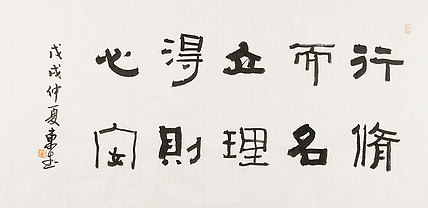 行脩
而名
立理
得則
心安
戊戌仲夏東